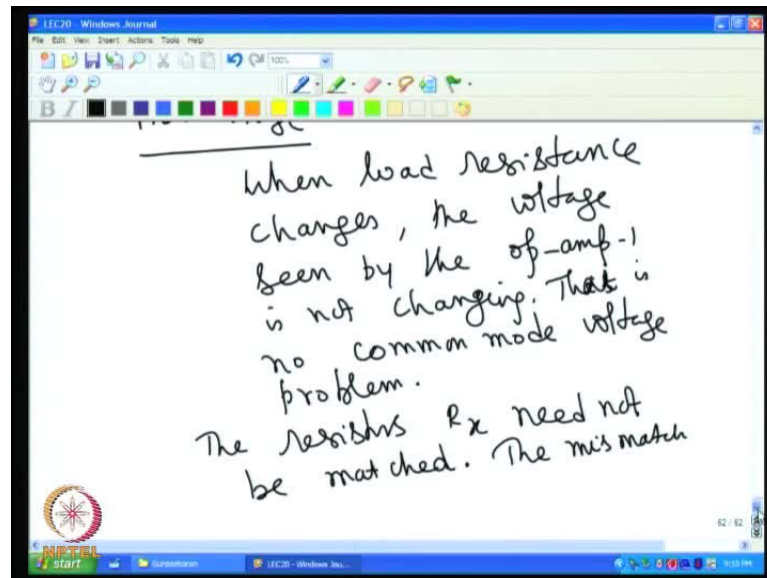 LEC20 - Windows Journal
File Edit View Insert Actions Tools Help
100%
B I
When load resistance
changes, the voltage
seen by the op-amp-1
is not changing. That is
no common mode voltage
problem.
The resistors Rx need not
be matched. The mismatch
62 / 62
NPTEL
start
Gunasekaran
LEC20 - Windows Jou...
9:53 PM